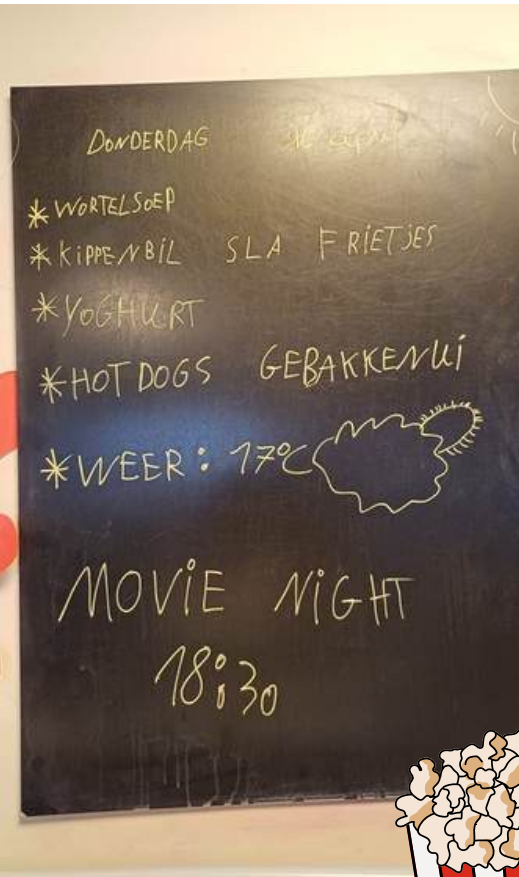 DONDERDAG
* WORTELSOEP
* KIPPENBIL SLA FRIETJES
* YOGHURT
* HOT DOGS GEBAKKEN UI
* WEER: 17°C
MOVIE NIGHT
18:30